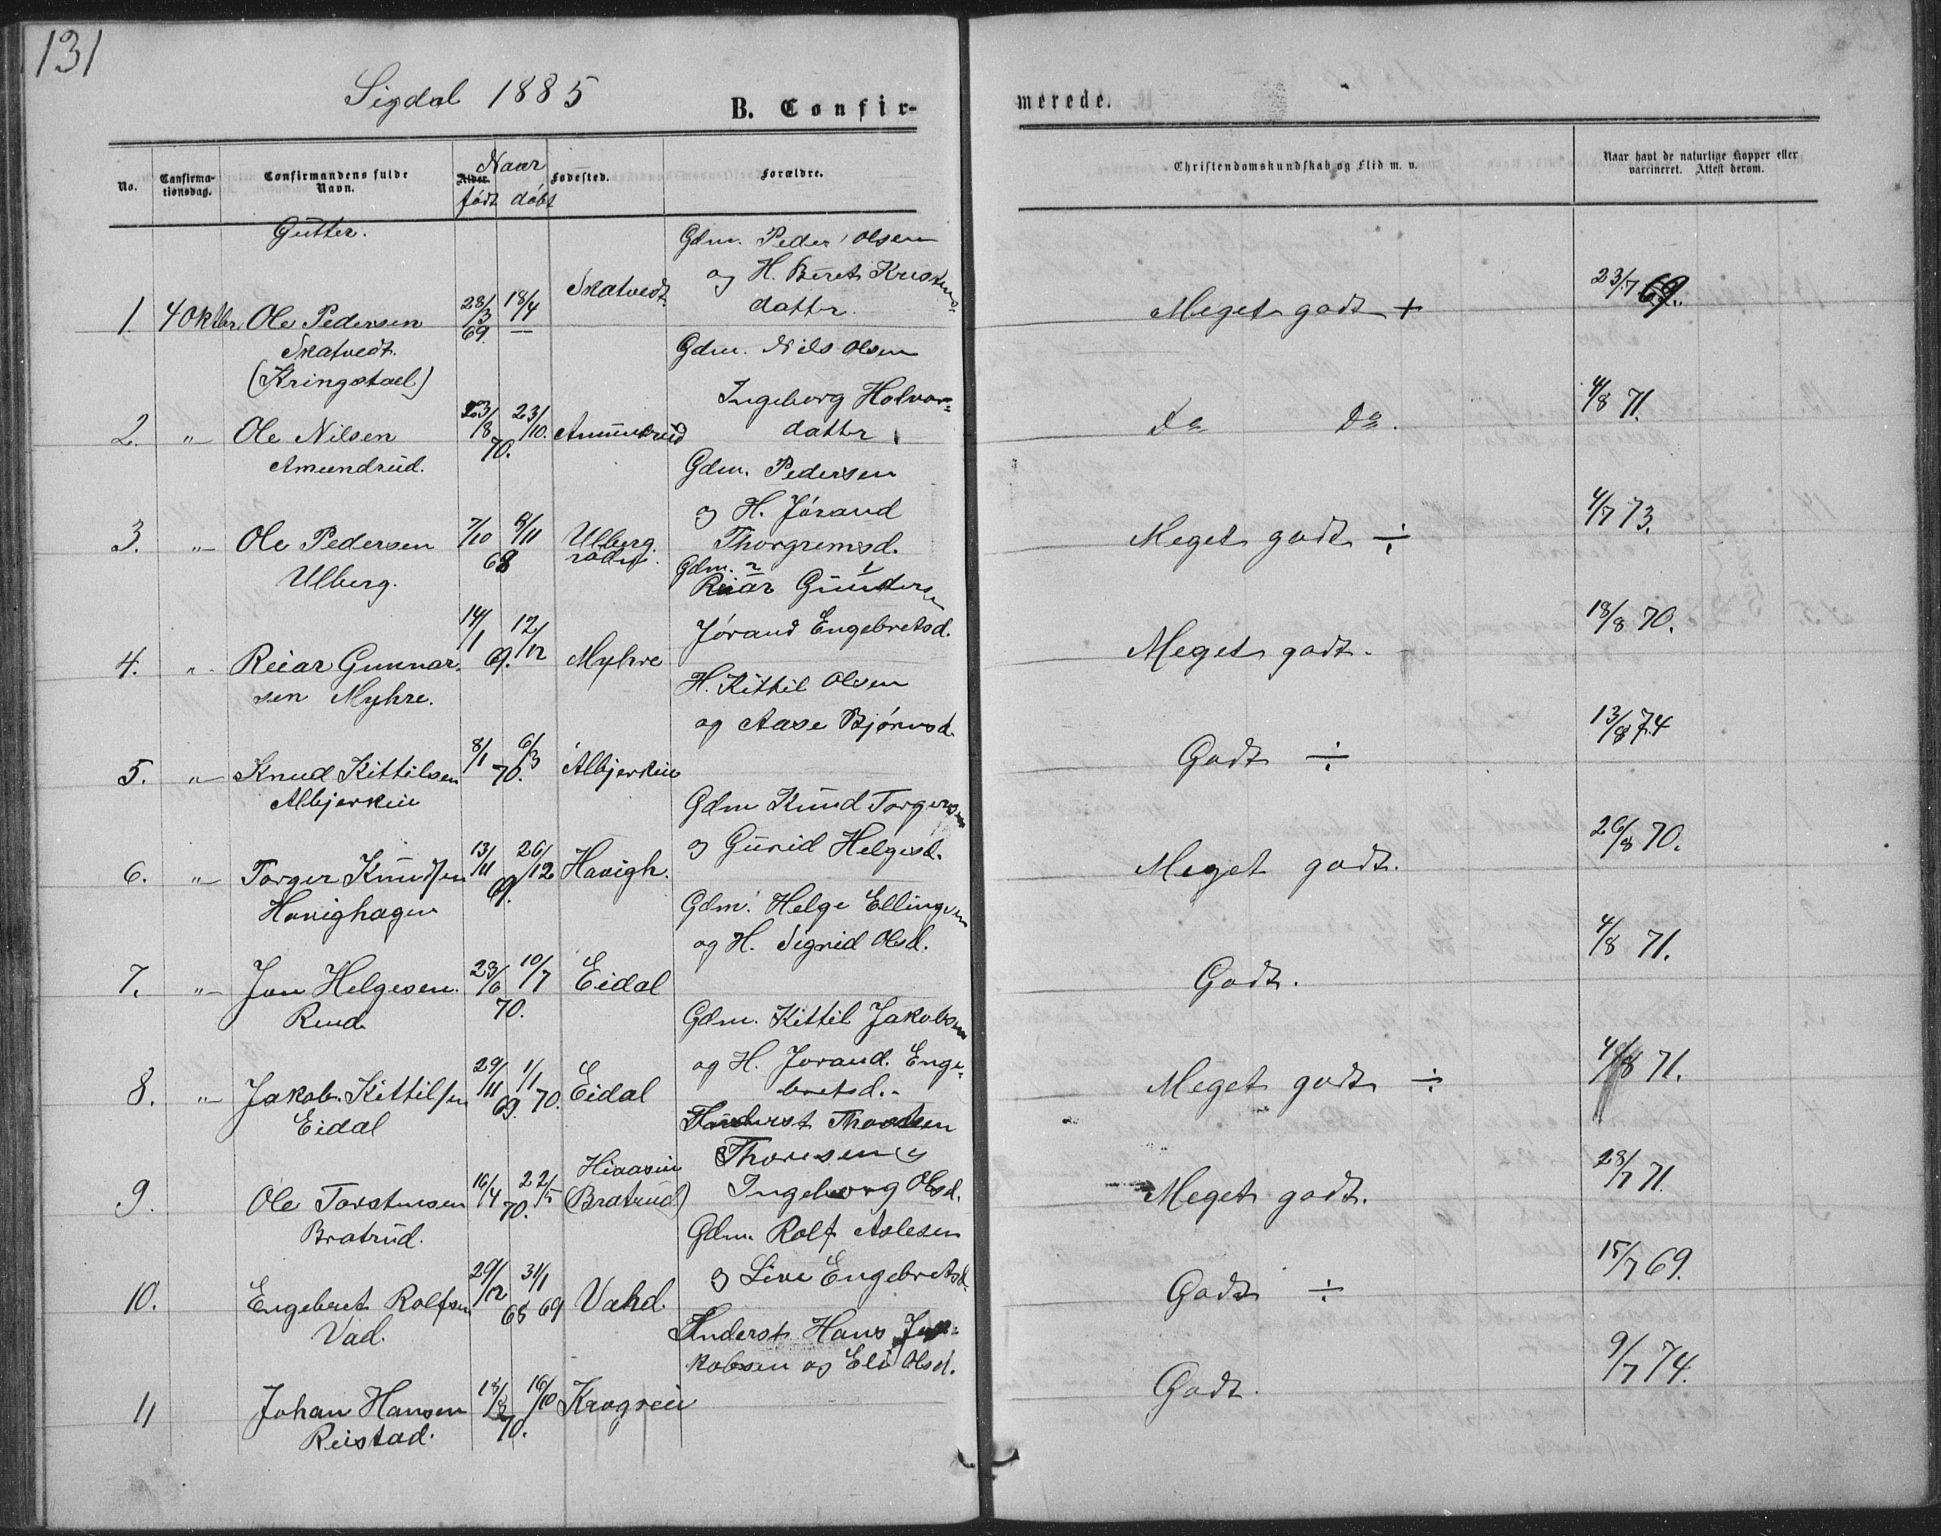 131
Sigdal 1885
B. Confir-
merede.
No.
Confirma-
tionsdag.
Confirmandens fulde
Navn.
Naar
Alder.
født døbt
Fødested.
Forældre.
Christendomskundskab og Flid m. v.
Naar havt de naturlige Kopper eller
vaccineret. Attest derom.
Gutter.
1. 4 Oktbr. Ole Pedersen
Skatvedt.
(Kringstael)
28/3 69. 18/4 —
Skatvedt.
Gdm. Peder Olsen
og H. Beret Kristens-
datter.
Meget godt +
23/7 69.
2. " Ole Nilsen
Amundrud.
23/8 70. 23/10.
Amundrud
Gdm. Nils Olsen
Ingeborg Holvor-
datter
Do Do.
4/8 71.
3. " Ole Pedersen
Ulberg.
7/10 68 8/11
Ulberg.
Gdm. Pedersen
og H. Jørand
Thorgremsd.
Meget godt ÷
4/7 73.
4. " Reiar Gunnar
sen Myhre.
14/1 69. 12/12
Myhre
Gdm.
Reiar
Jørand Engebretsd.
Meget godt.
18/8 70.
5. " Knud Kittilsen
Albjerkeie
8/1 70. 6/3
Albjerkeie
H. Kittil Olsen
og Aase Bjørnsd.
Godt ÷
13/8 74
6. " Torger Knudsen
Havighagen
13/11 69. 26/12
Havigh.
Gdm Knud Torgersen
og Gunid Helgesd.
Meget godt.
26/8 70.
7. " Jon Helgesen
Rud
23/6 70. 10/7
Eidal
Gdm. Helge Ellingsen
og H. Sigrid Olsd.
Godt.
4/8 71.
8. " Jakob Kittilsen
Eidal
29/11 69. 1/1 70.
Eidal
Gdm. Kittil Jakobsen
og H. Jorand. Enge-
bretsd.
Meget godt ÷
4/8 71.
9. Ole Torstensen
Bratrud.
16/4 70. 22/5
(Bratrud)
Thoresen og
Ingeborg Olsd.
Meget godt.
28/7 71.
10. Engebret Rolfsen
Vad.
29/12 68 31/1 69
Vahd.
Gdm. Rolf Aslesen
og Live Engebretsd.
Godt ÷
15/7 69.
11 Johan Hansen
Reistad.
18/8 70. 16/10
Krogreie
Inderst Hans Ja-
kobsen og Eli Olsd.
Godt.
9/7 74.